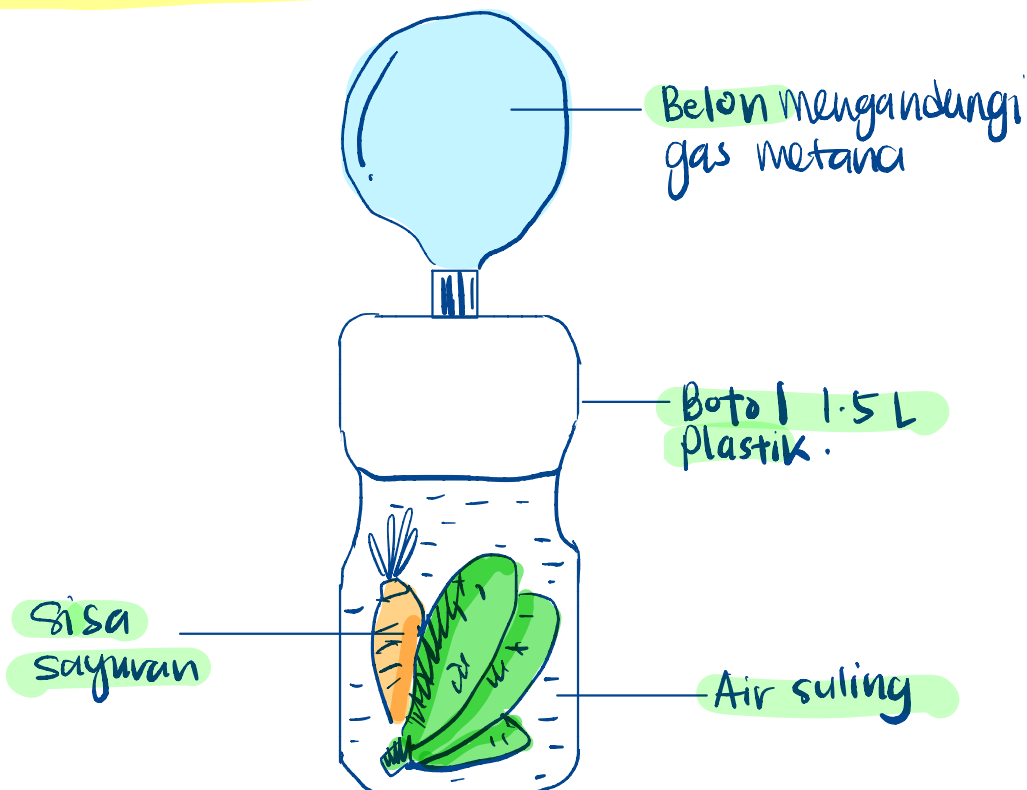 Belon mengandungi
gas metana
Botol 1.5 L
Plastik.
Sisa
sayuran
Air suling